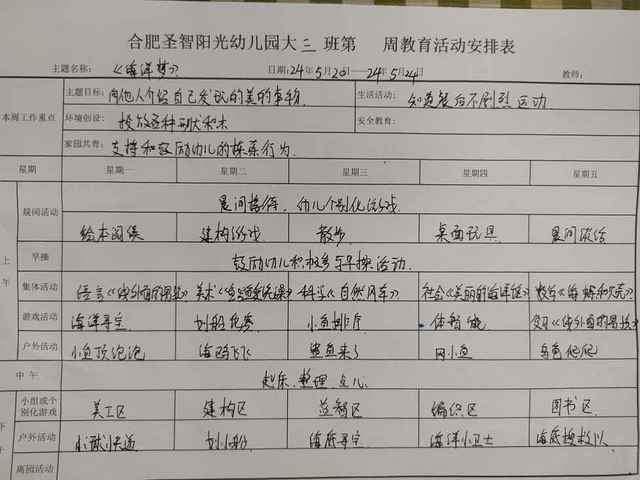 合肥圣智阳光幼儿园大三班第 周教育活动安排表
主题名称:《海洋梦》 日期:24年5月20—24年5月24日 教师:
本周工作重点 主题目标:向他人介绍自己发现的美的事物 生活活动:知道餐后不剧烈运动
环境创设:投放各种形状积木 安全教育:
家园共育:支持和鼓励幼儿的择菜行为
星期 星期一 星期二 星期三 星期四 星期五
上午
晨间活动 晨间接待、幼儿个别化游戏
绘本阅读 建构游戏 散步 桌面玩具 晨间谈话
早操 鼓励幼儿积极参与早操活动
集体活动 语言 美术 科学《自然风车》 社会 数学
游戏活动 海洋寻宝 划船比赛 小鱼排厅
户外活动 小鱼顶泡泡 海鸥飞飞 鲨鱼来了 网小鱼 乌龟爬爬
中午 起床、整理、点心
小组或个别化游戏 美工区 建构区 益智区 编织区 图书区
户外活动 小球快递 划小船 海底寻宝 海洋小卫士
离园活动